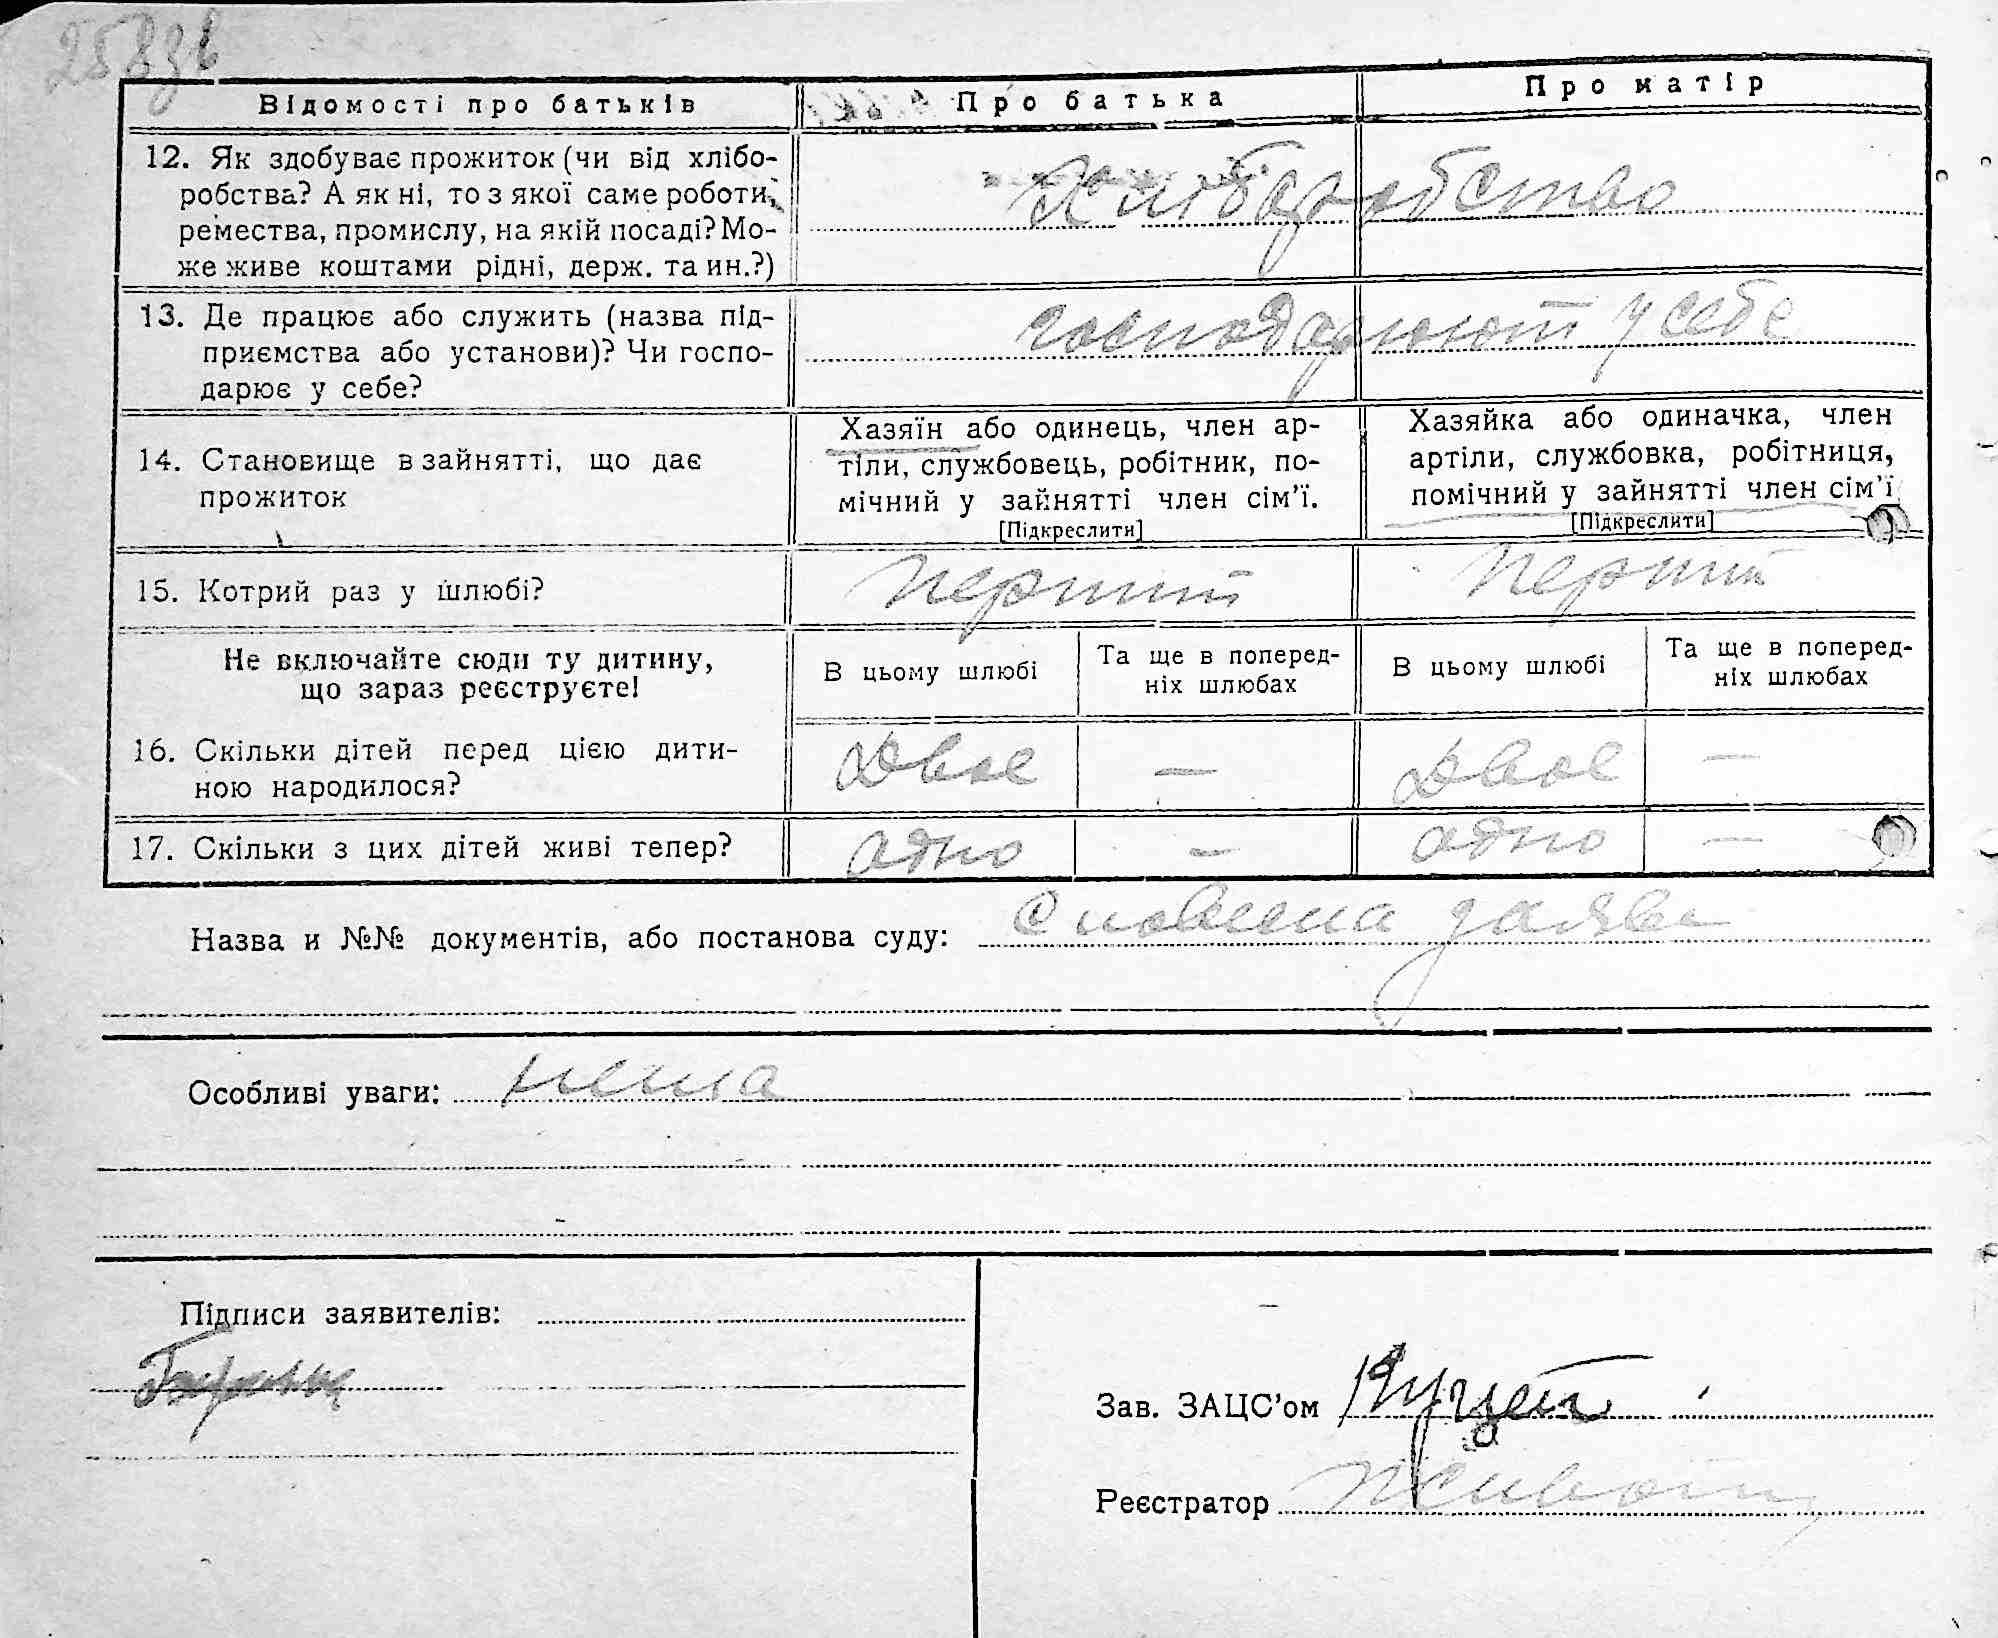 258зв
Відомості про батьків Про батька Про матір
12. Як здобуває прожиток (чи від хлібо-
робства? А як ні, то з якої саме роботи,
ремества, промислу, на якій посаді? Мо-
же живе коштами рідні, держ. та ин.?)
Хліборобство
13. Де працює або служить (назва під-
приємства або установи)? Чи госпо-
дарює у себе?
господарюют у себе
14. Становище в зайнятті, що дає
прожиток
Хазяїн або одинець, член ар-
тіли, службовець, робітник, по-
мічний у зайнятті член сім'ї.
[Підкреслити]
Хазяйка або одиначка, член
артіли, службовка, робітниця,
помічний у зайнятті член сім'ї
[Підкреслити]
15. Котрий раз у шлюбі? перший перший
Не включайте сюди ту дитину,
що зараз реєструєте!
В цьому шлюбі
Та ще в поперед-
ніх шлюбах
В цьому шлюбі
Та ще в поперед-
ніх шлюбах
16. Скільки дітей перед цією дити-
ною народилося?
Двое — Двое —
17. Скільки з цих дітей живі тепер? одно — одно —
Назва и №№ документів, або постанова суду: заява
Особливі уваги: нема
Підписи заявителів:
Зав. ЗАЦС'ом
Реєстратор